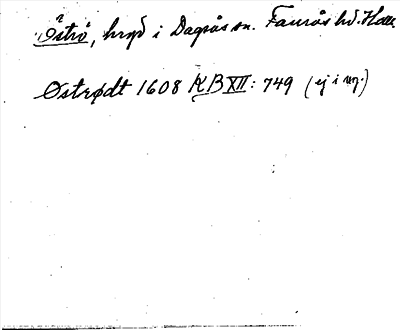 Öströ, hmd i Dagsås sn. Faurås hd. Hall.
Østrødt 1608 KB XII: 749 (ej i reg.)